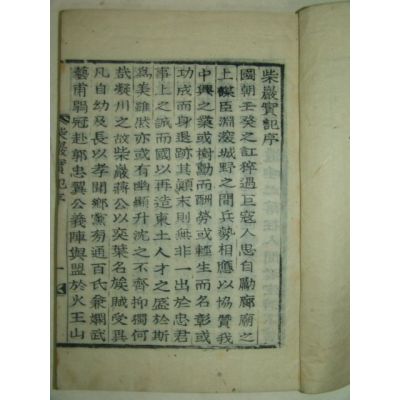 柴巖實記序
國朝壬癸之訌猝遇巨寇人思自勵廊廟之
上謀臣淵邃城野之間兵勢相應以協贊我
中興之業或樹勳而酬勞或輕生而名彰或
功成而身退跡其顚末則無非一出於忠君
事上之誠而國以再造東土人才之盛於斯
爲美雖然亦或有幽顯升沈之不齊抑獨何
哉凝川之故柴巖蔣公以奕葉名族賦受異
凡自幼及長以孝聞鄕黨旁通百氏兼嫺武
藝甫踰冠赴郭忠翼公義陣與盟於火王山
柴巖實記序 一